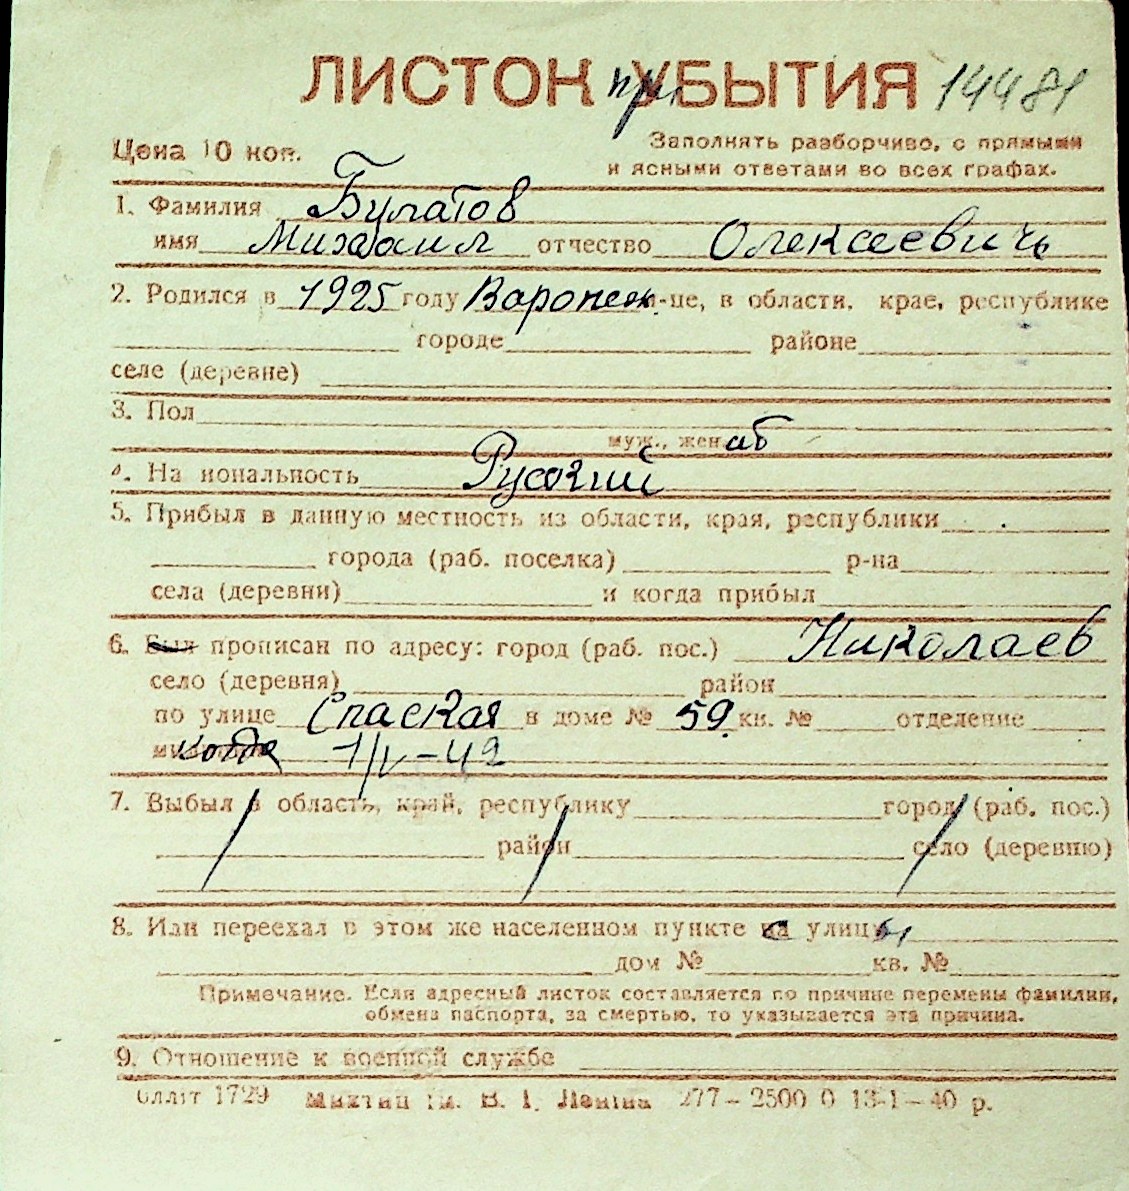 ЛИСТОК приУБЫТИЯ 14481
Цена 10 коп.
Заполнять разборчиво, с прямыми
и ясными ответами во всех графах.
1. Фамилия Булатов
имя Михаил отчество Олексеевичь
2. Родился в 1925 году Варонеж -це, в области, крае, республике
городе районе
селе (деревне)
3. Пол
муж., жен
4. На иональность Русский
5. Прибыл в данную местность из области, края, республики
города (раб. поселка) р-на
села (деревни) и когда прибыл
6. Был прописан по адресу: город (раб. пос.) Николаев
село (деревня) район
по улице Спаская в доме № 59. кв. № отделение
когда 1/V-42
7. Выбыл в область, край, республику город (раб. пос.)
район село (деревню)
8. Или переехал в этом же населенном пункте на улицы
дом № кв. №
Примечание. Если адресный листок составляется по причине перемены фамилии,
обмена паспорта, за смертью, то указывается эта причина.
9. Отношение к военной службе
1729 В. І. Леніна 277–2500 0 13-1–40 р.